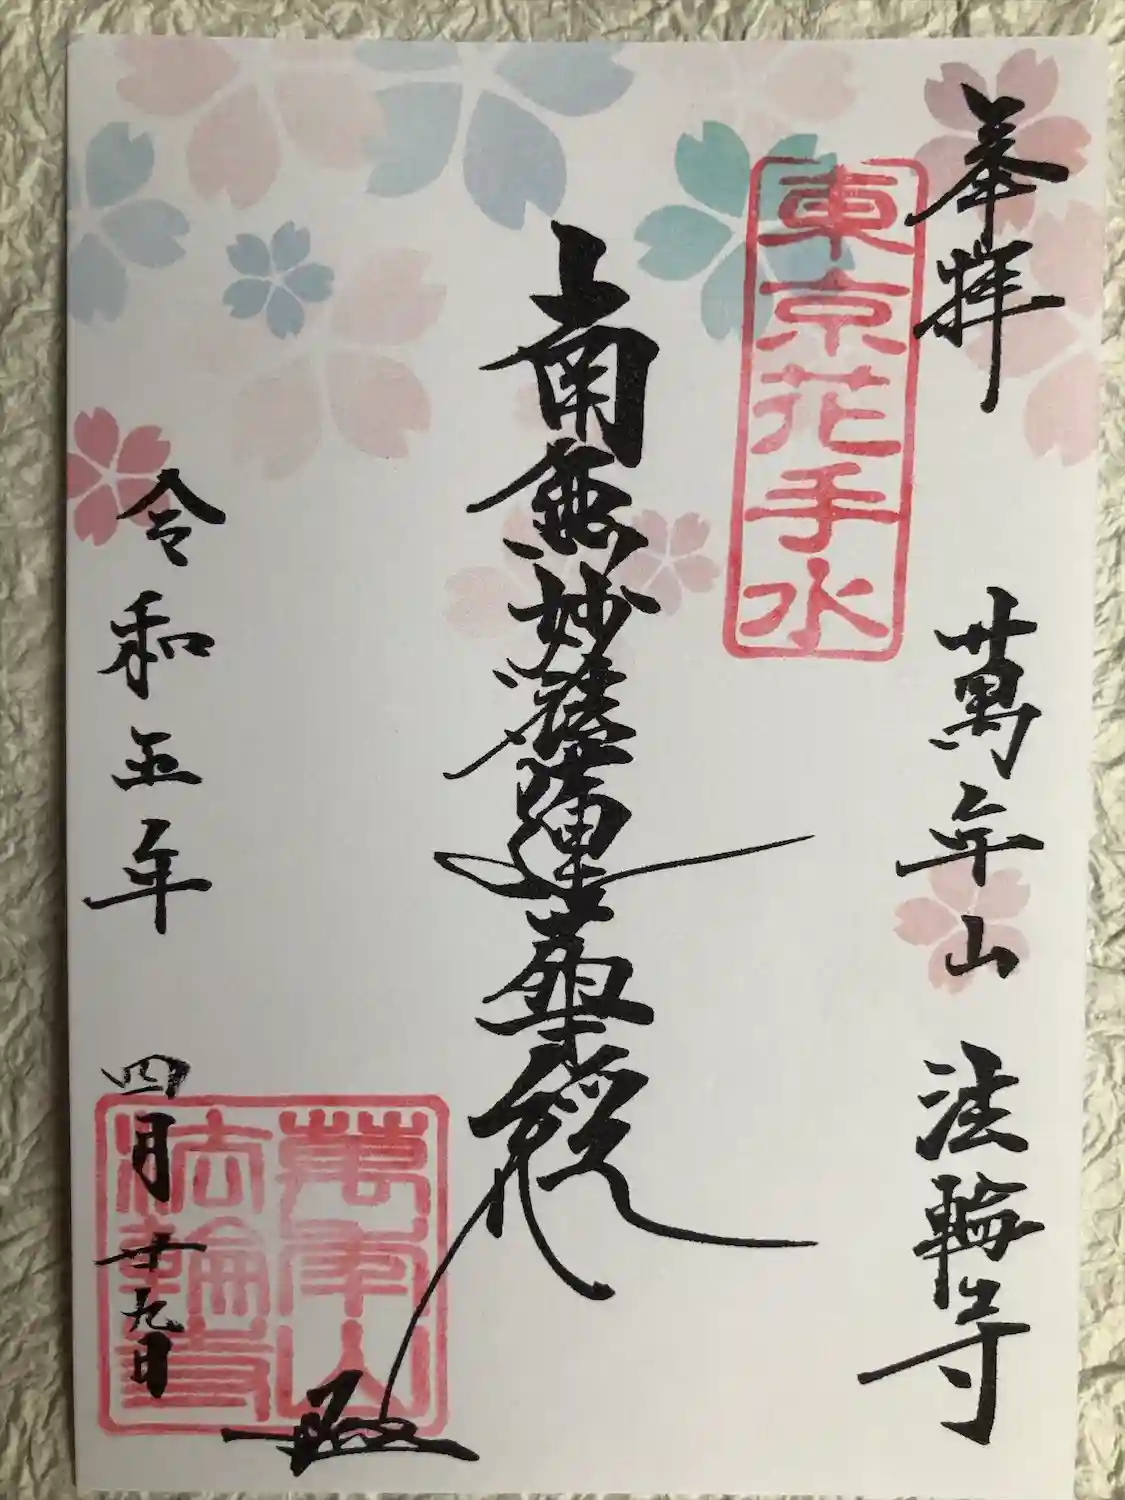 奉拝
萬年山 法輪寺
東京花手水
南無妙法蓮華経
令和五年 四月十九日
萬年山
法輪寺